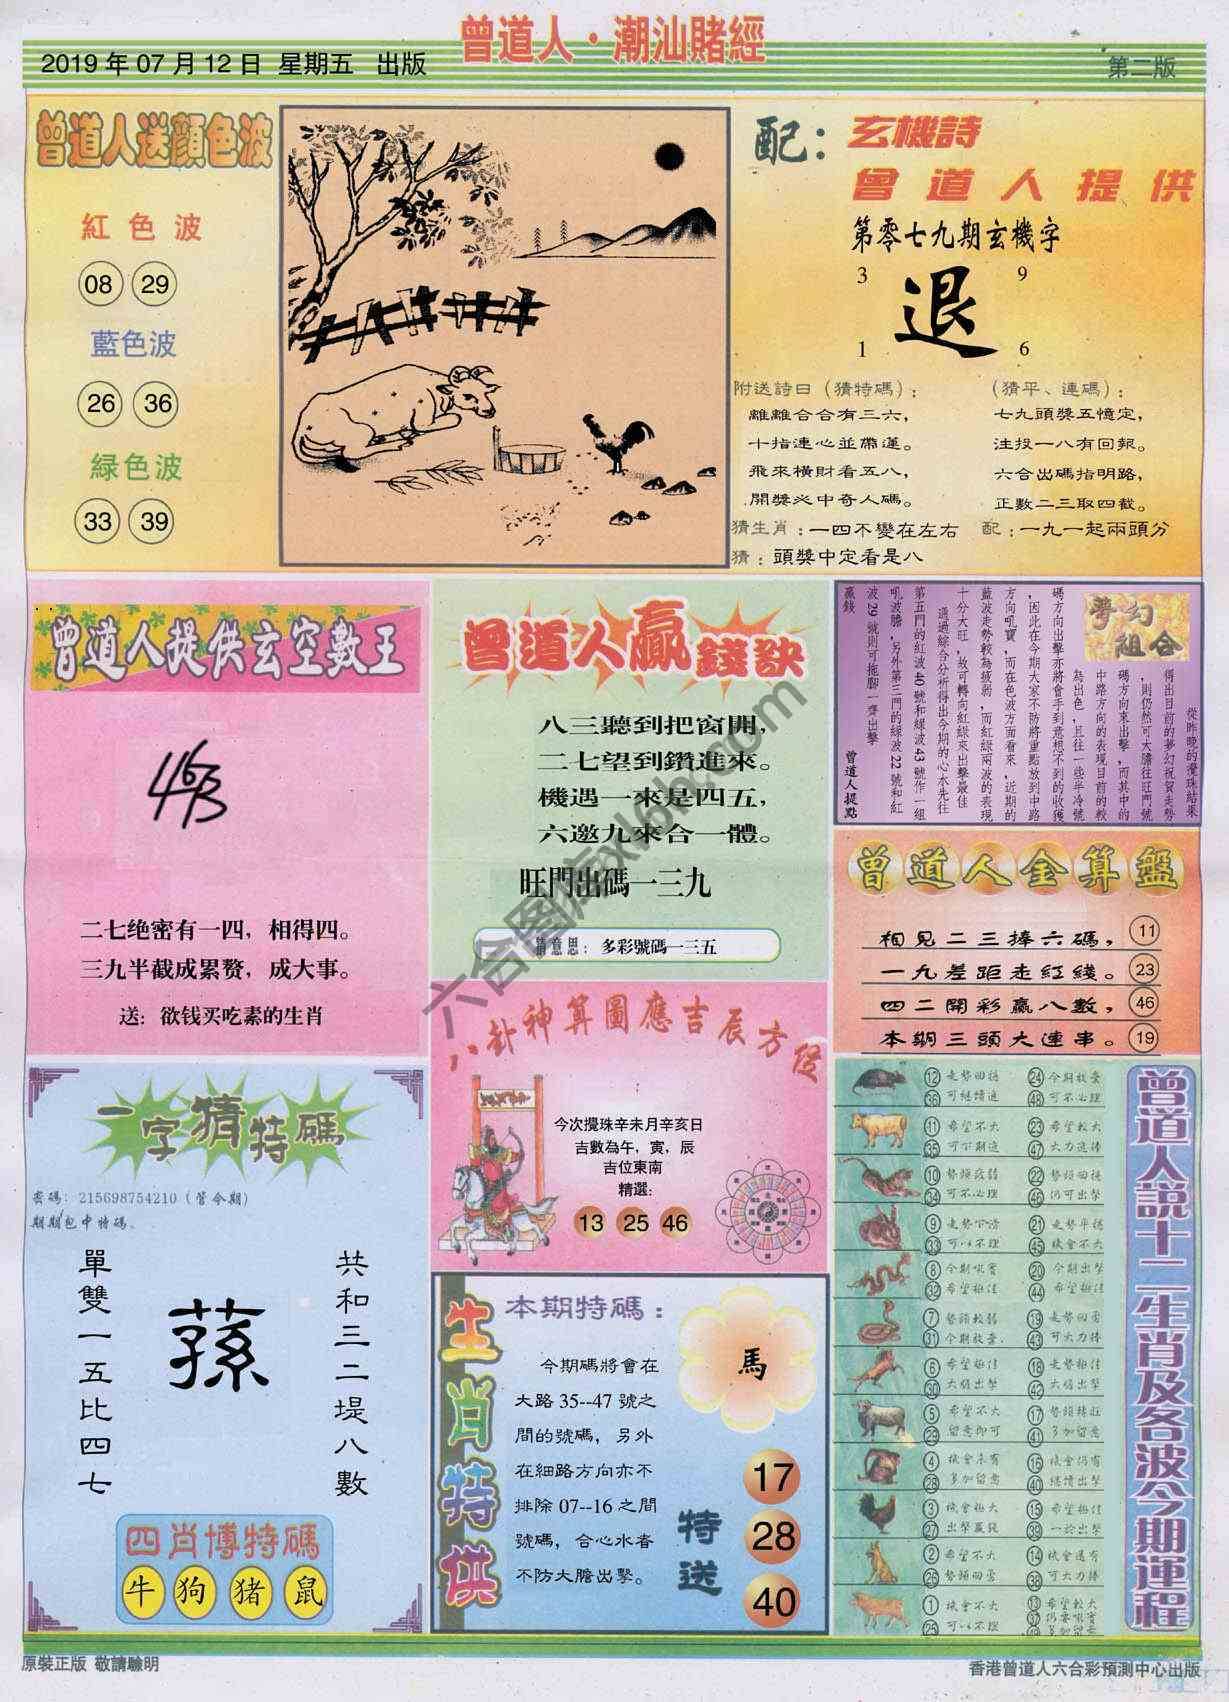 曾道人·潮汕賭經
2019年07月12日 星期五 出版
第二版
曾道人送顏色波
紅色波
08 29
藍色波
26 36
緑色波
33 39
配：玄機詩
曾道人提供
第零七九期玄機字
3 9
退
1 6
附送詩曰（猜特碼）：
離離合合有三六，
十指連心並帶運。
飛來橫財看五八，
開獎必中奇人碼。
（猜平、連碼）：
七九頭獎五憶定，
注投一八有回報。
六合出碼指明路，
正數二三取四截。
猜生肖：一四不變在左右
配：一九一起兩頭分
猜：頭獎中定看是八
曾道人提供玄空數王
463
二七绝密有一四，相得四。
三九半截成累赘，成大事。
送：欲钱买吃素的生肖
曾道人贏錢訣
八三聽到把窗開，
二七望到鑽進來。
機遇一來是四五，
六邀九來合一體。
旺門出碼一三九
猜意思：多彩號碼一三五
夢幻組合
從昨晚的攪珠結果
得出目前的夢幻祝賀走勢
，則仍然可大膽往旺門號
碼方向來出擊，而其中的
中路方向的表現目前的較
為出色，且往一些半冷號
碼方向出擊亦將會手到意想不到的收獲
，因此在今期大家不防將重點放到中路
方向吼寶，而在色波方面看來，近期的
藍波走勢較為疲弱，而紅綠兩波的表現
十分大旺，故可轉向紅綠來出擊最佳
通過綜合分析得出今期的心水先往
第五門的紅波40號和綠波43號作一組
吼波膽，另外第三門的綠波22號和紅
波29號則可拖腳一齊出擊
贏錢
曾道人提點
曾道人金算盤
相見二三捧六碼， 11
一九差距走紅綫。 23
四二開彩贏八數， 46
本期三頭大連串。 19
八卦神算圖應吉辰方位
今次攪珠辛未月辛亥日
吉數為午，寅，辰
吉位東南
精選：
13 25 46
一字猜特碼
密碼：215698754210（管今期）
期期包中特碼。
單雙一五比四七
蓀
共和三二堤八數
四肖博特碼
牛 狗 猪 鼠
生肖特供
本期特碼：
今期碼將會在
大路35--47號之
間的號碼，另外
在細路方向亦不
排除07--16之間
號碼，合心水者
不防大膽出擊。
馬
特送
17
28
40
曾道人說十二生肖及各波今期運程
12 36 走勢回穩 可繼續追 24 48 今期放棄 可不必理
11 35 希望不大 可不期追 23 47 希望較大 大力追捧
10 34 勢頭疲弱 可不必理 22 46 勢頭回穩 仍可出擊
9 33 走勢下滑 可以不理 21 45 走勢平穩 機會不大
8 32 今期吼實 希望極佳 20 44 今期出擊 希望極佳
7 31 勢頭較弱 今期放棄 19 43 走勢回勇 可大力捧
6 30 希望極佳 大膽出擊 18 42 走勢極佳 大膽出擊
5 29 希望不大 留意即可 17 41 勢頭轉旺 多加留意
4 28 機會未有 多加留意 16 40 機會仍有 繼續出擊
3 27 機會極大 出擊贏錢 15 39 希望極佳 一於出擊
2 26 希望不大 勢頭回勇 14 38 機會還有 可大力捧
1 25 機會不大 可以不理 13 37 49 希望較大 仍要吼實 多加留意
原裝正版 敬請驗明
香港曾道人六合彩預測中心出版
六合图库xk6hk.com